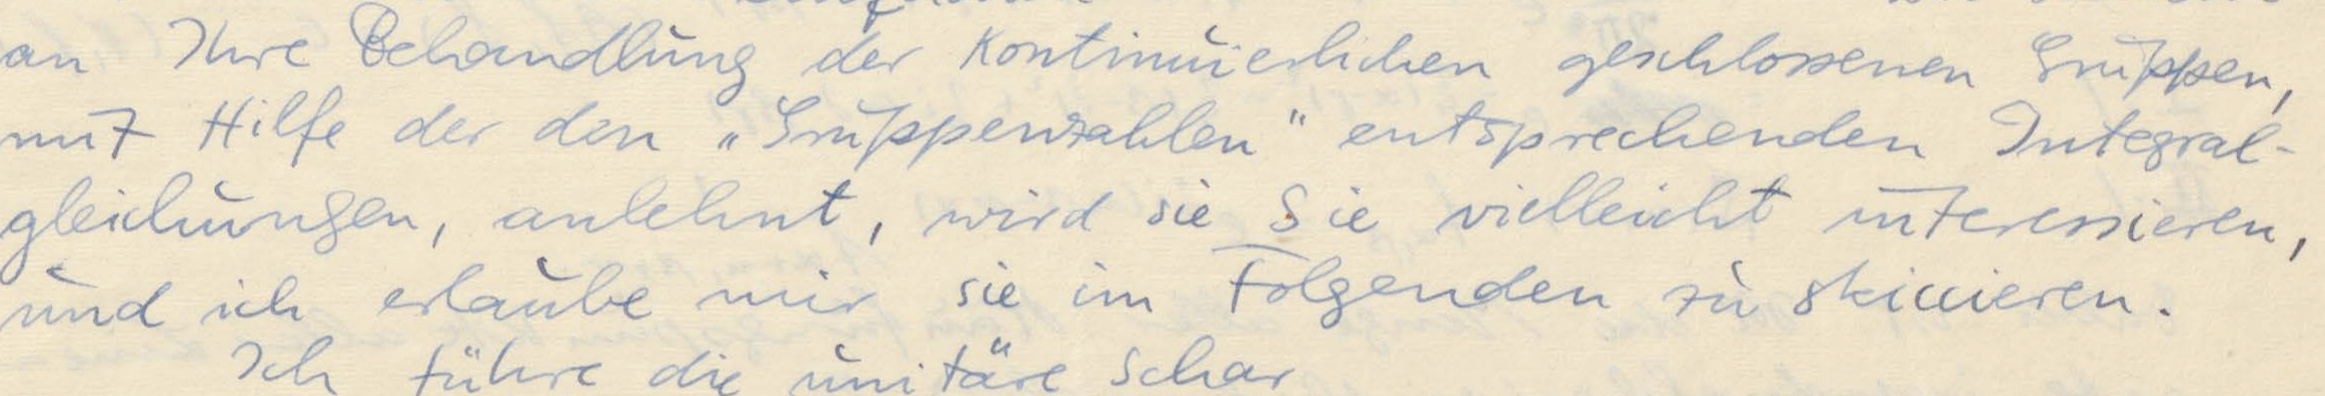 an Ihre Behandlung der kontinuierlichen geschlossenen Gruppen,
mit Hilfe der den „Gruppenzahlen“ entsprechenden Integral-
gleichungen, anlehnt, wird sie Sie vielleicht interessieren,
und ich erlaube mir sie im Folgenden zu skiccieren.
Ich führe die unitäre Schar